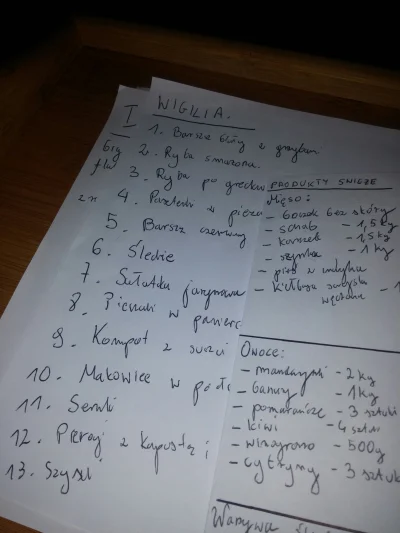 I
WIGILIA.
1. Barszcz biały z grzybem
2. Ryba smażona
3. Ryba po grecku
4. w
5. Barszcz czerwony
6. Śledzie
7. Sałatka jarzynowa
8. w
9. Kompot z suszi
10. Makowiec w
11. Sernik
12. Pierogi z kapustą i
13.
PRODUKTY ŚWIEŻE
Mięso:
- boczek bez skóry
- schab - 1,5 kg
- karczek - 1,5 kg
- szynka - 1 kg
- z indyka
- kiełbasa
wędzone - 1
Owoce:
- mandarynki - 2 kg
- banany - 1 kg
- pomarańcze - 3 sztuki
- kiwi - 4 sztuki
- winogrono - 500g
- cytryny - 3 sztuk
Warzywa